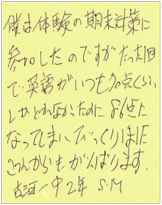 僕は体験の期末対策に
参加したのですがたった1週間
で英語がいつも70点くらい
しかとれなかったのに86点に
なってまい、びっくりました
これからもがんばります。
中2年 S.M